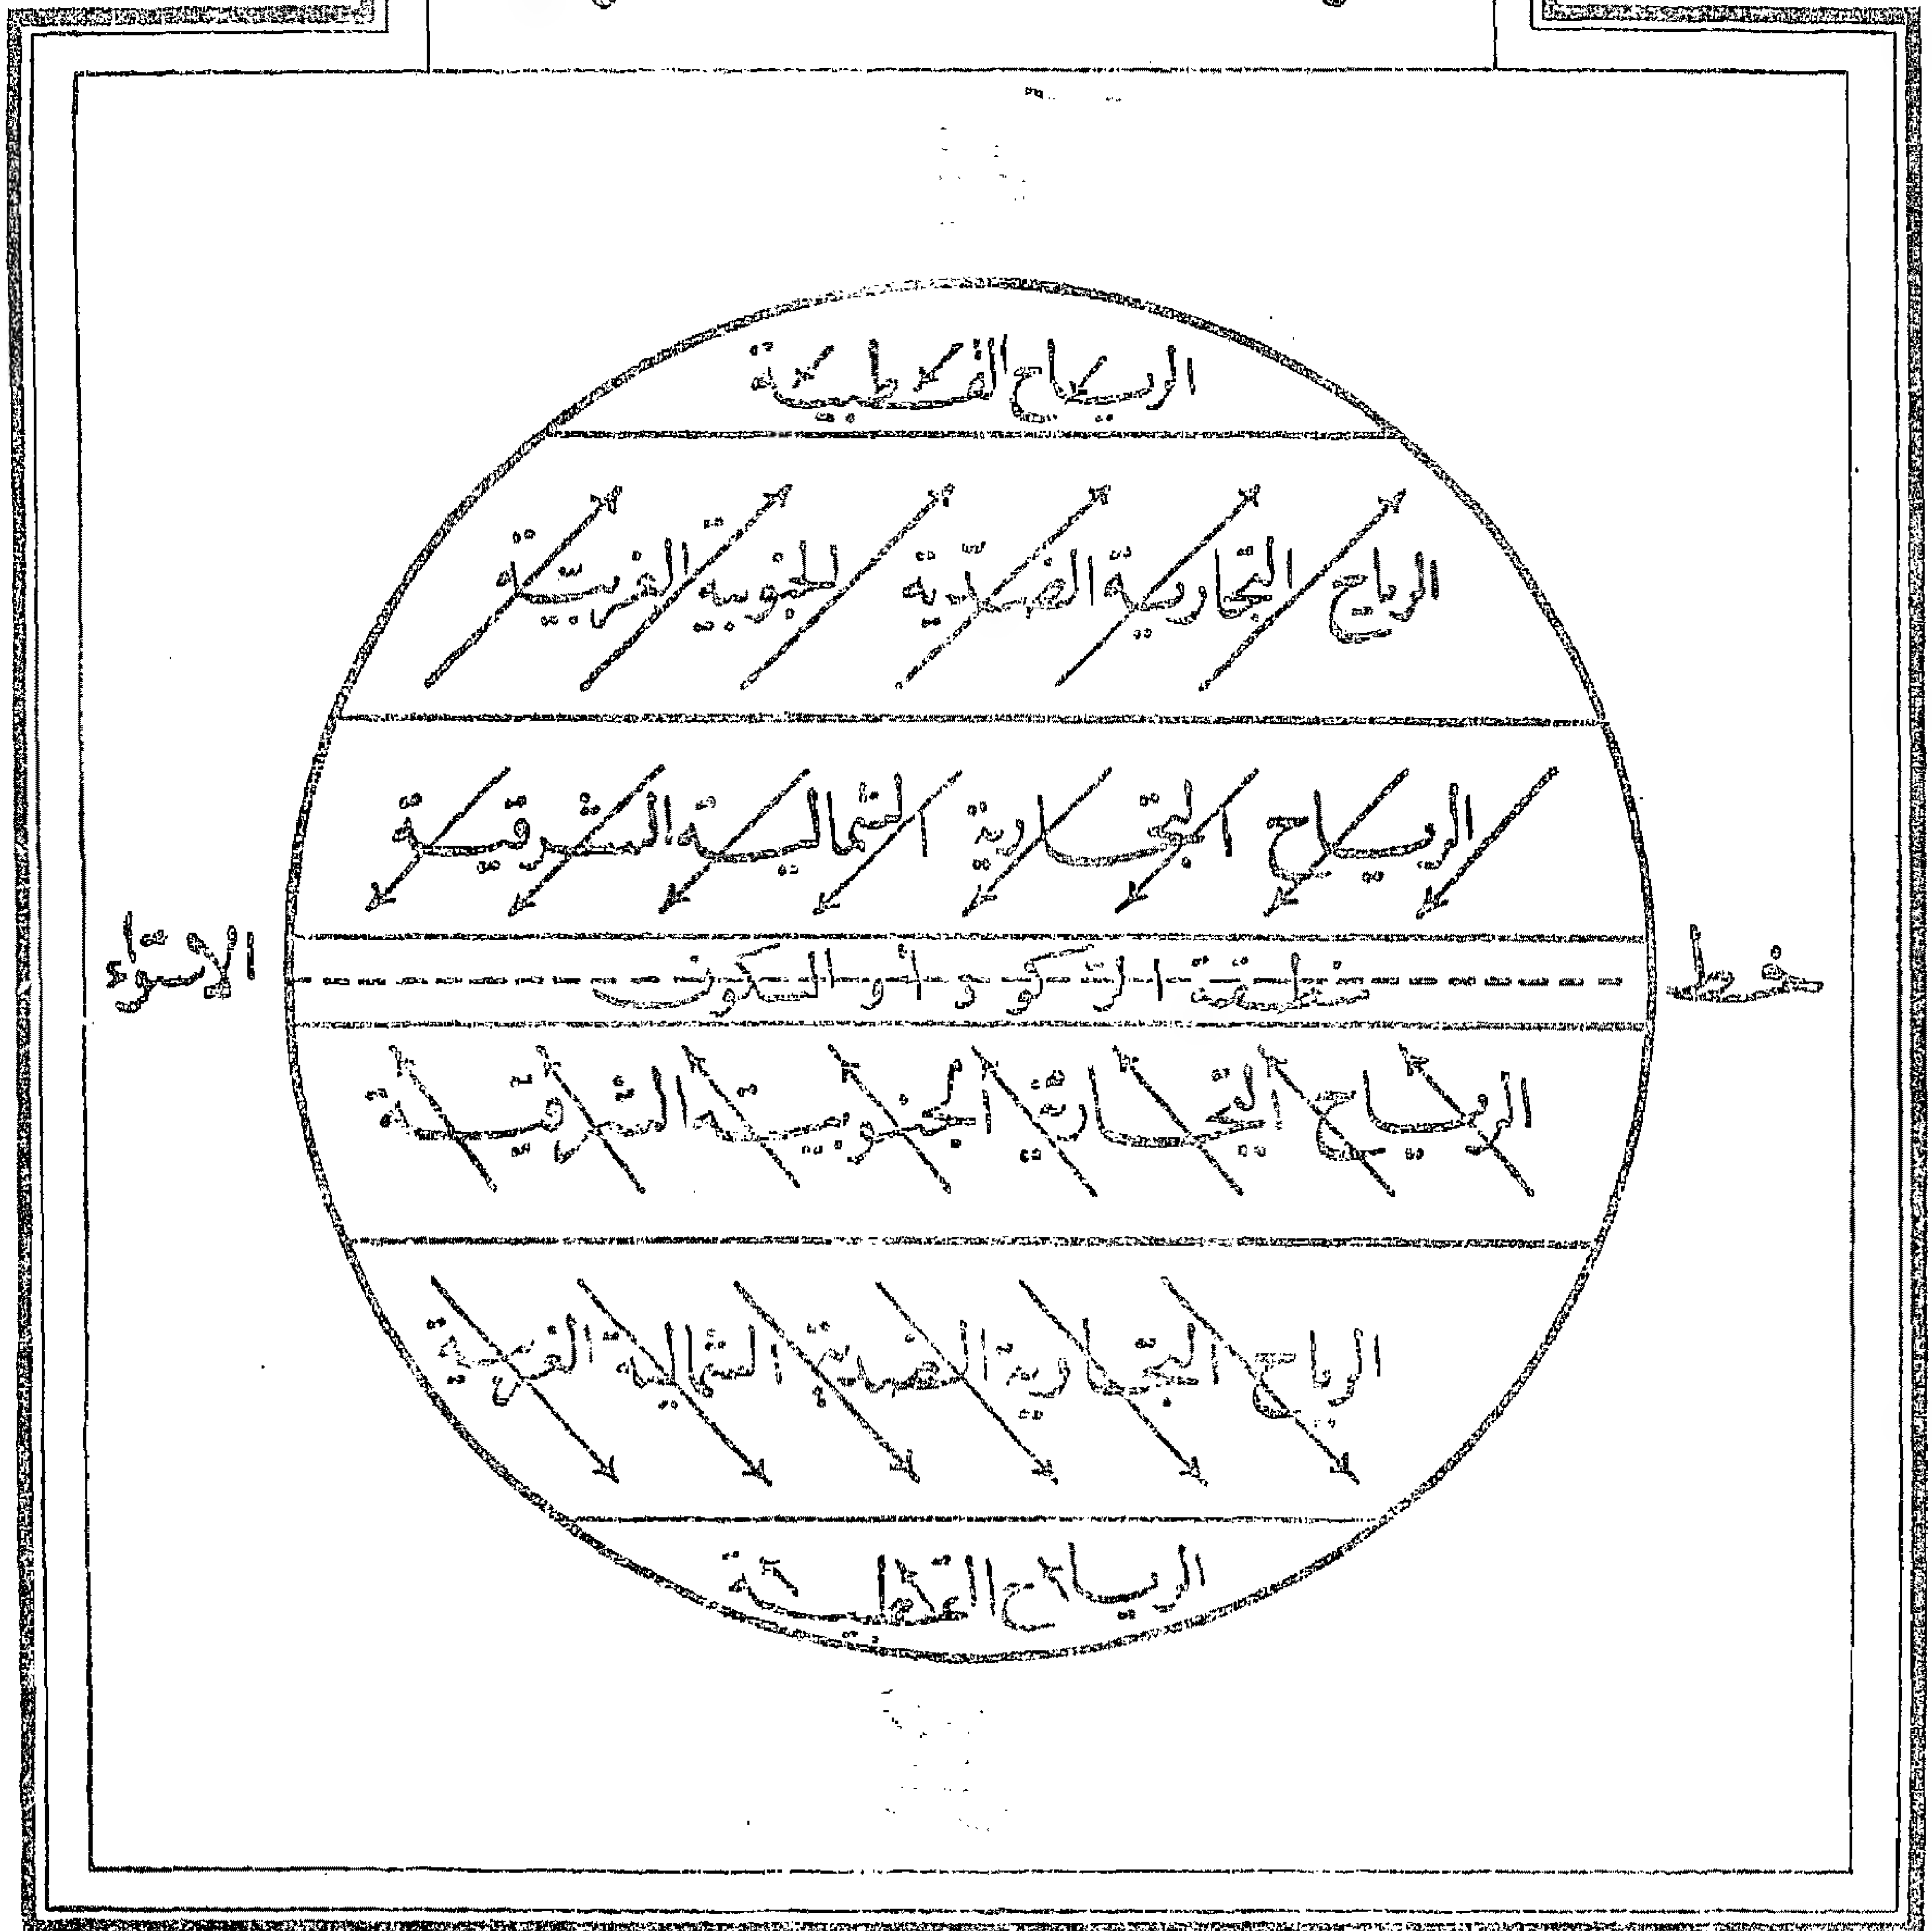 الرياح القطبية
الرياح التجارية الضدية الجنوبية الغربية
الرياح التجارية الشمالية الشرقية
خط الاستواء
منطقة الركود أو السكون
الرياح التجارية الجنوبية الشرقية
الرياح التجارية الضدية الشمالية الغربية
الرياح القطبية